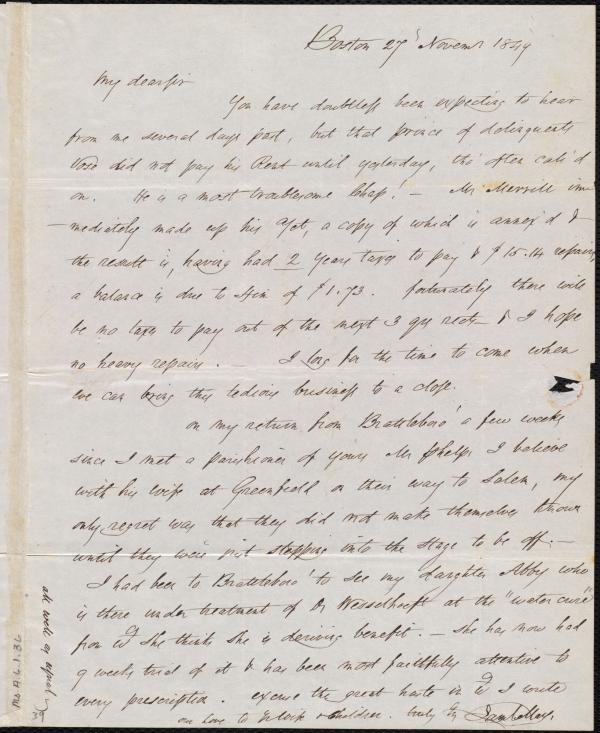 Boston 27 Novemr 1849
My dear sir
You have doubtless been expecting to hear
from me several days past, but that prince of delinquents
Vose did not pay his Rent until yesterday, tho' often call'd
on. He is a most troublesome Chap! — Mr Merrill im
mediately made up his acct, a copy of which is annex'd &
the result is, having had 2 years taxes to pay & $15.14 repairs
a balance is due to Him of $1.73. Fortunately there will
be no taxes to pay out of the next 3 qrs rects — & I hope
no heavy repairs. I long for the time to come when
we can bring this tedious business to a close.
On my return from Brattleboro' a few weeks
since I met a parishioner of yours Mr Phelps I believe
with his wife at Greenfield on their way to Salem, my
only regret was that they did not make themselves known
until they were just stepping into the stage to be off. —
I had been to Brattleboro' to see my daughter Abby who
is there under treatment of Dr Wesselhoeft at the "water cure"
from wh She thinks she is deriving benefit. — She has now had
9 weeks trial of it & has been most faithfully attentive to
every prescription. Excuse the great haste in wh I write
our love to Yr Wife & Children. truly Yrs Saml May.
all well as usual
Ms.A.6.1.36